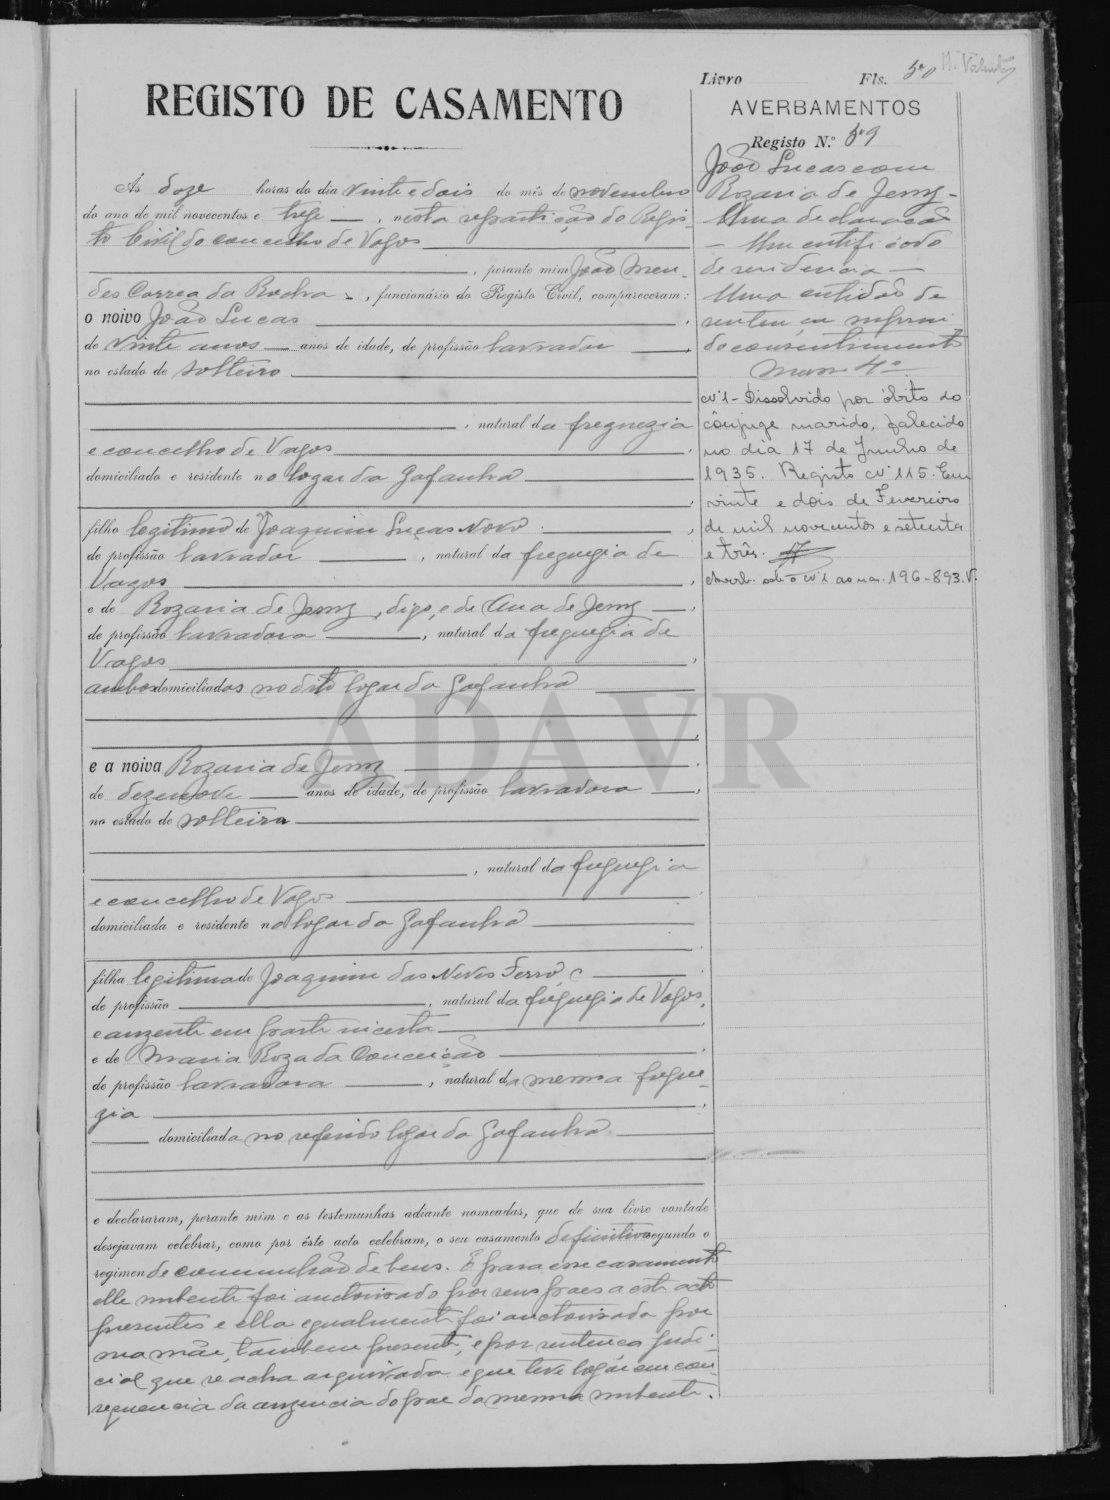 Livro Fls. 50 M. Valente
REGISTO DE CASAMENTO
As doze horas do dia vinte e dois do mês de novembro
do ano de mil novecentos e treze, nesta repartição do Regis-
to Civil do concelho de Vagos
, perante mim João Men-
des Correa da Rocha, funcionário do Registo Civil, compareceram:
o noivo João Lucas
de vinte anos anos de idade, de profissão lavrador
no estado de solteiro
, natural da freguezia
e concelho de Vagos
domiciliado e residente no logar da Gafanha
filho legitimo de Joaquim Lucas Novo
de profissão lavrador, natural da freguezia de
Vagos
e de Rozaria de Jesus, digo, e de Ana de Jesus
de profissão lavradora, natural da freguezia de
Vagos
ambos domiciliados no dito logar da Gafanha
e a noiva Rozaria de Jesus
de dezenove anos de idade, de profissão lavradora
no estado de solteira
, natural da freguezia
e concelho de Vagos
domiciliada e residente no logar da Gafanha
filha legitima de Joaquim das Neves Ferro
de profissão, natural da freguezia de Vagos,
e auzente em parte incerta
e de Maria Roza da Conceição
de profissão lavradora, natural da mesma fregue-
zia
domiciliada no referido logar da Gafanha
e declararam, perante mim e as testemunhas adiante nomeadas, que de sua livre vontade
desejavam celebrar, como por êste acto celebram, o seu casamento definitivo segundo o
regimen de communhão de bens. E para esse casamento
elle nubente foi auctorisado por seus paes a este acto
presentes e ella egualmente foi auctorisada por
sua mãe, tambem presente, e por sentença judi-
cial que se acha arquivada e que teve logar em con-
sequencia da auzencia do pae da mesma nubente.
AVERBAMENTOS
Registo N.º 59
João Lucas com
Rozaria de Jesus -
Uma declaração
- Um certificado
de residencia -
Uma certidão de
sentença
do consentimento
Mass 4º
Nº 1 - Dissolvido por óbito do
cônjuge marido, falecido
no dia 17 de Junho de
1935. Registo nº 115. Em
vinte e dois de Fevereiro
de mil novecentos e setenta
e três.
Averb. sob o nº 1 ao nas. 196-893.V.
ADAVR